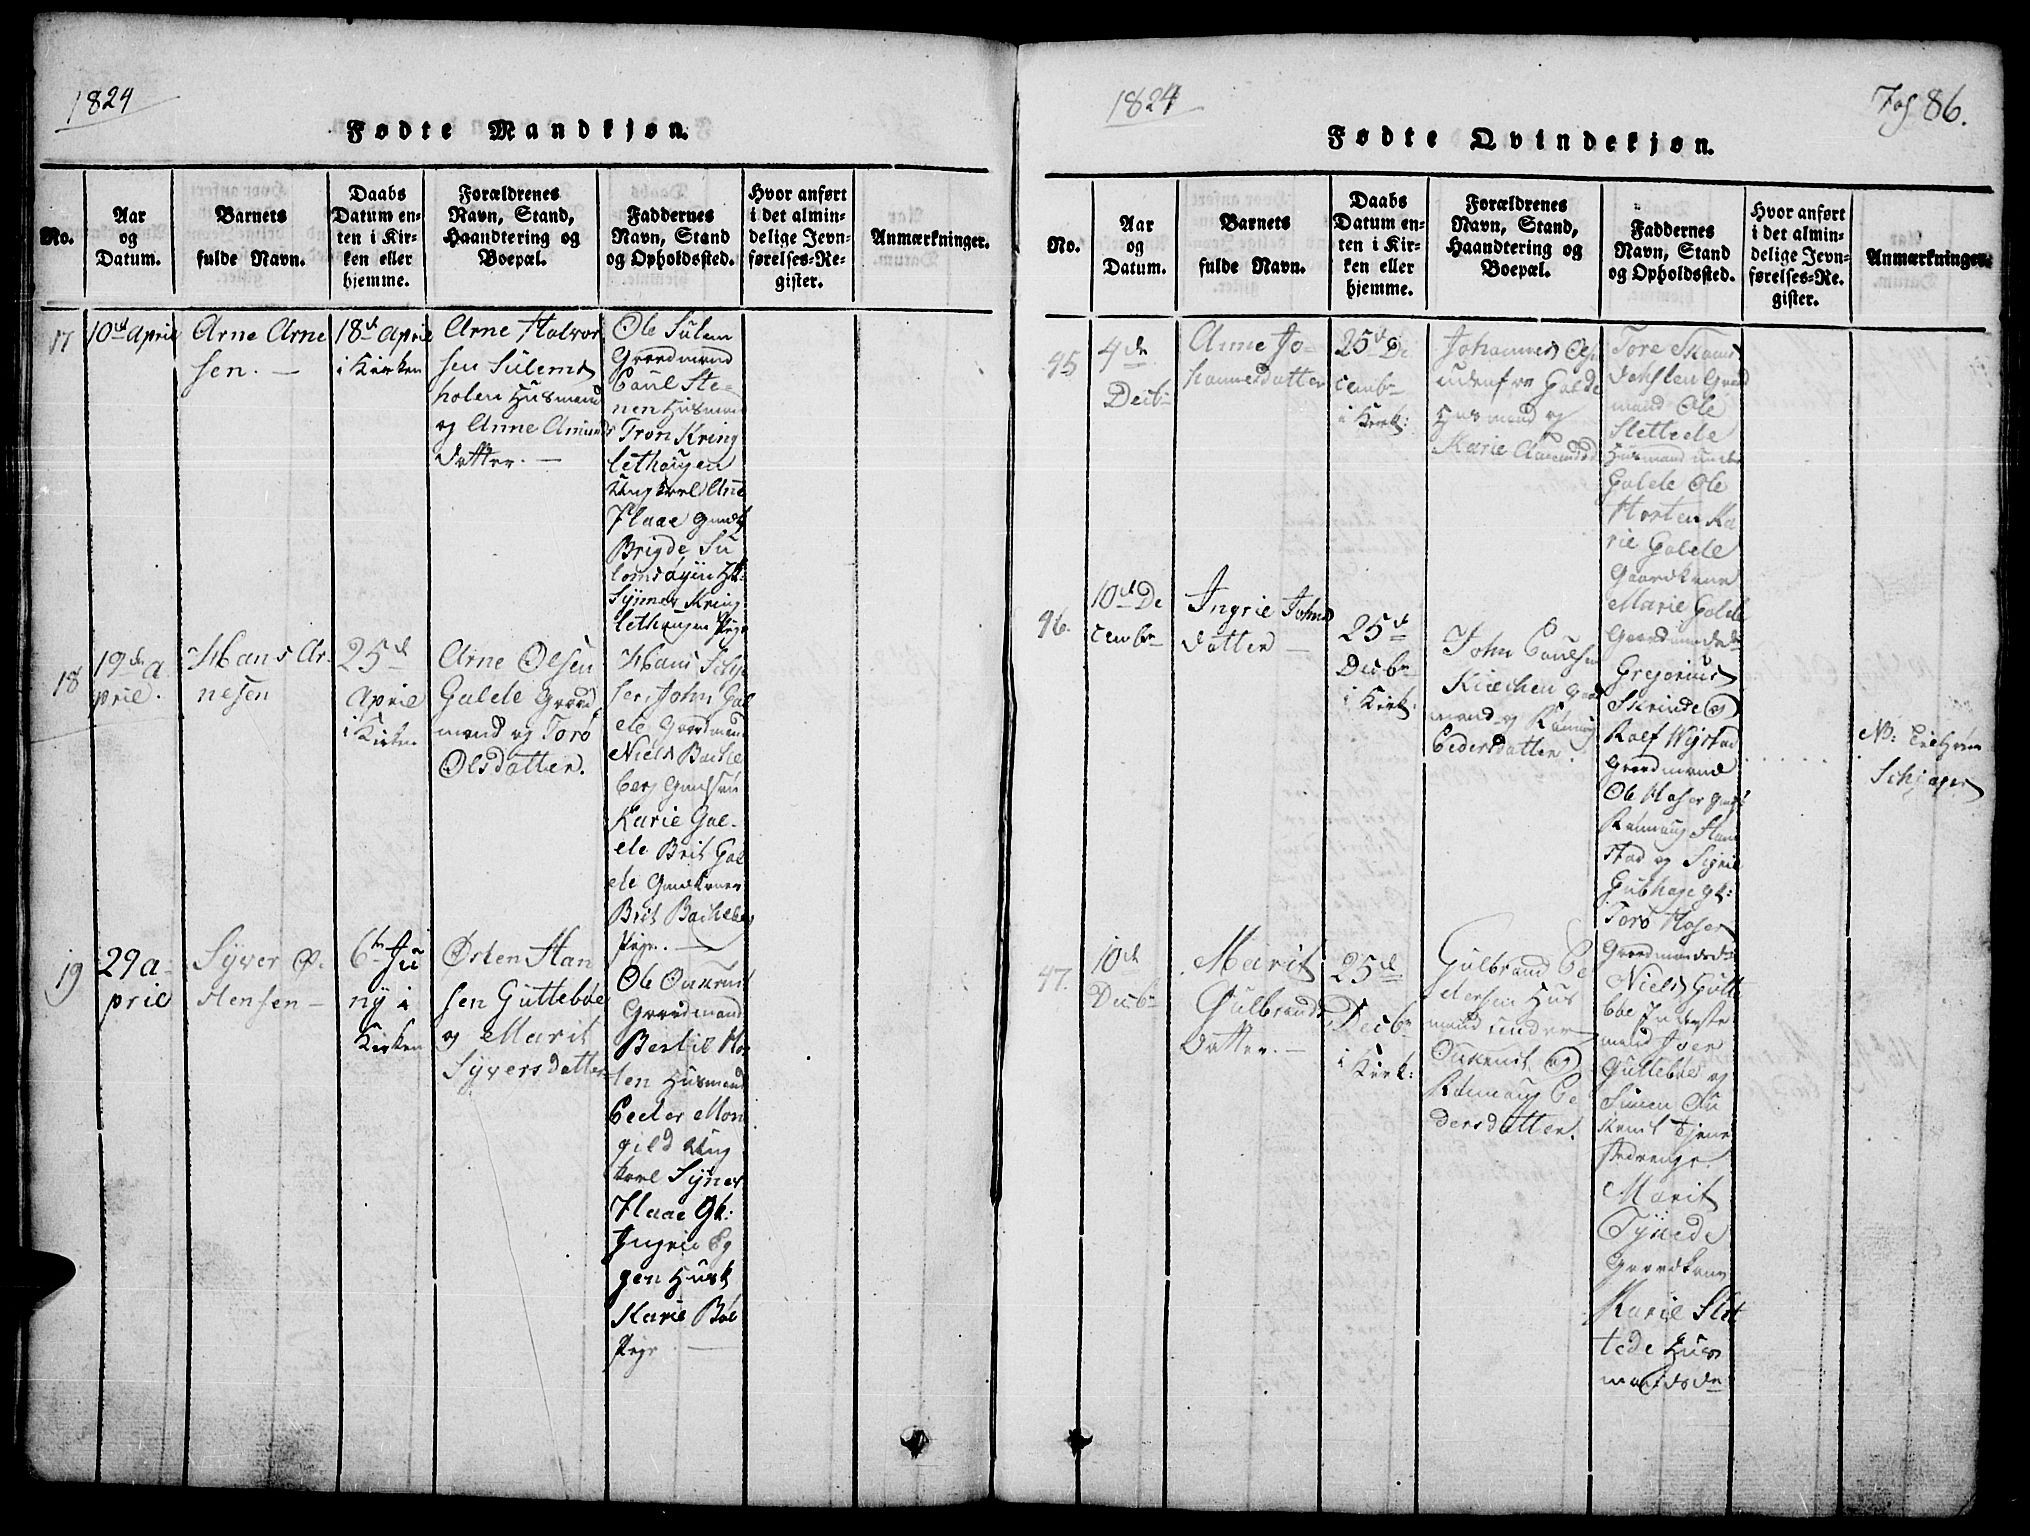 1824
Fødte Mandkjøn.
No.
Aar
og
Datum.
Barnets
fulde Navn.
Daabs
Datum en-
ten i Kir-
ken eller
hjemme.
Forældrenes
Navn, Stand,
Haandtering og
Boepæl.
Faddernes
Navn, Stand
og Opholdssted.
Hvor anført
i det almin-
delige Jevn-
førelses-Re-
gister.
Anmærkninger.
17
10de April
Arne Arne
sen. —
18de April
i Kirken
Arne Halvor
sen Sulems
holen Husmand
og Anne Amunds
datter. —
Ole Sulem
Gaardmand
Poul Ste-
nen Husmand
Tron Kring
lethaugen
Ungkarl Ane
Flaae
Brigde Su
lemsøyen
Synnev Kring
lethaugen Pige
18
19de A
pril.
Hans Ar-
nesen
25de
April
i Kirken
Arne Olsen
Galde Gaard
mand og Toro
Olsdatter.
Hans
John Gal
de Gaardmænd
Niels Bache
berg
Karie Gal-
de Brit Gal
de
Brit Bacheberg
Pige. —
19
29 A-
pril
Syver Ø-
stensen —
6te Ju
ny i
Kirken
Østen Han
sen Guttebøe
og Marit
Syversdatter
Ole
Gaardmand
Bertil
Husmand
Peder Mon
gild Ung
karl Synnev
Flaae Gk:
Ingrie Eg
gen Husk
Karie Bøe
Pige —
1824
Fol 86.
Fødte Qvindekjøn.
No.
Aar
og
Datum.
Barnets
fulde Navn.
Daabs
Datum en-
ten i Kir-
ken eller
hjemme.
Forældrenes
Navn, Stand,
Haandtering og
Boepæl.
Faddernes
Navn, Stand
og Opholdssted.
Hvor anført
i det almin-
delige Jevn-
førelses-Re-
gister.
Anmærkninger.
45
4de
Decbr
Anne Jo-
hannesdatter
25de De
cembr
i Kirk:
Johannes
Galde
Husmand og
Karie Amundsd
Tore
Gaard
mand Ole
Slettede
Husmand under
Galde Ole
Horten Ka
rie Galde
Gaardkone
Marie Galde
Gaardmandsdr
46.
10de De
cembr
Ingrie Johns
datter —
25de
Decbr
i Kirk:
John Poulsen
Kirchen Gaard
mand og Rønnaug
Pedersdatter.
Gregorius
Skrinde og
Rolf Wistad
Gaardmænd
Ole Moser
Rønnaug
stad og Sigrie
Gubhage gk:
Toro Moser
Gaardmandsdr
47.
10de
Decbr
Marit
Gulbrands
datter. —
25de
Decbr
i Kirk:
Gulbrand Pe
dersen Hus
mand under
og
Rønnaug Pe
dersdatter.
Niels Gutte
bøe Inderste
mand Iver
Guttebøe og
Simen
Tjene
stedrenge.
Marit
Tynede
Gaardkone
Marie Slet
tede Hus
mandsdr